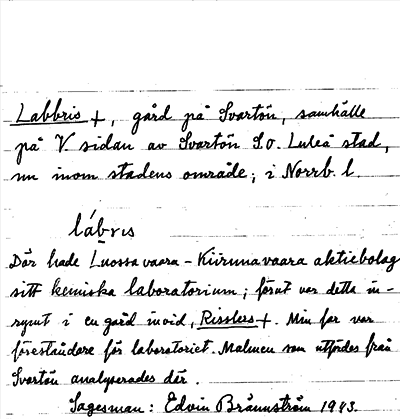 Labbris +, gård på Svartön, samhälle
på V. sidan av Svartön S.O. Luleå stad,
nu inom stadens område; i Norrb. l.
lábris
Där hade Luossavaara-Kiirunavaara aktiebolag
sitt kemiska laboratorium; förut var detta in-
rymt i en gård invid, Risslers +. Min far var
föreståndare för laboratoriet. Malmen som utfördes från
Svartön analyserades där.
Sagesman: Edvin Brännström 1943.